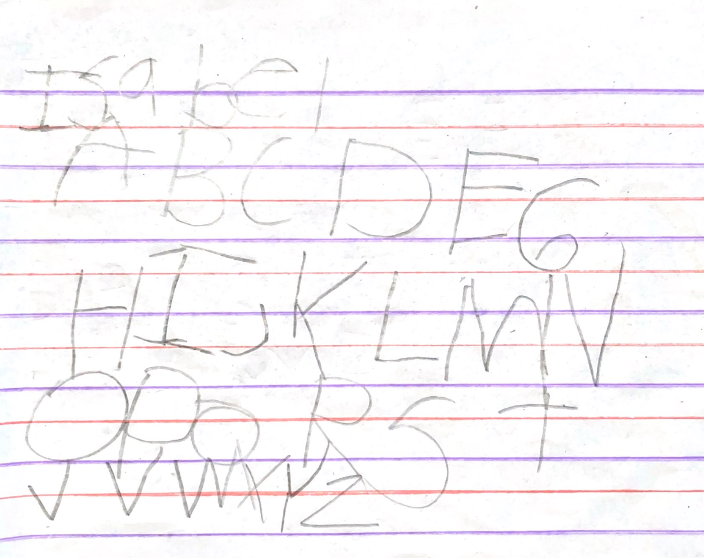 Isabel
A B C D E G
H I J K L M N
O P Q R S t
V V W X Y Z